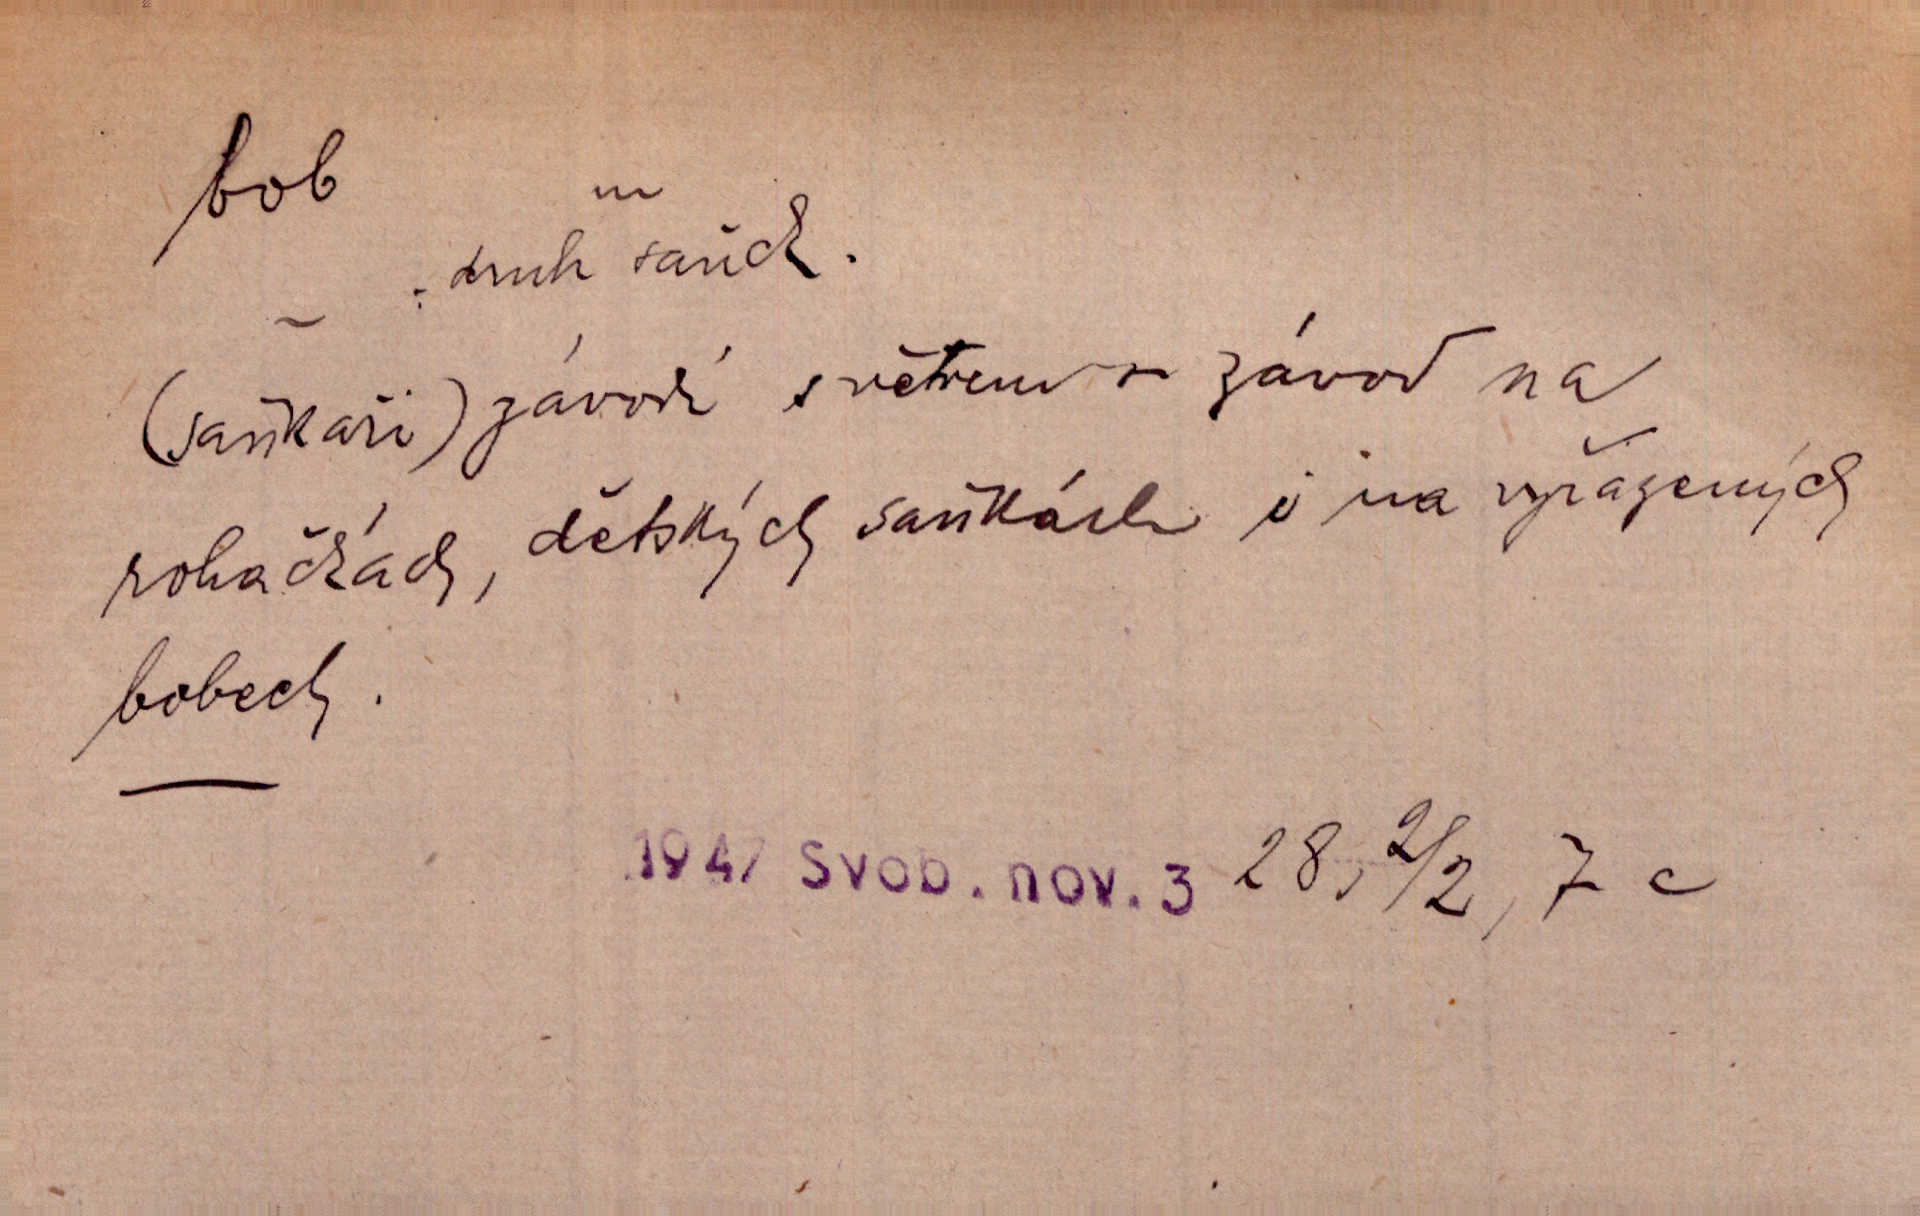 bob
m
: druh sáněk.
(saňkaři) závodí s větrem o závod na
rohačkách, dětských saňkách i na vyřazených
bobech.
1947 Svob. nov. 3 28, 2/2, 7 c